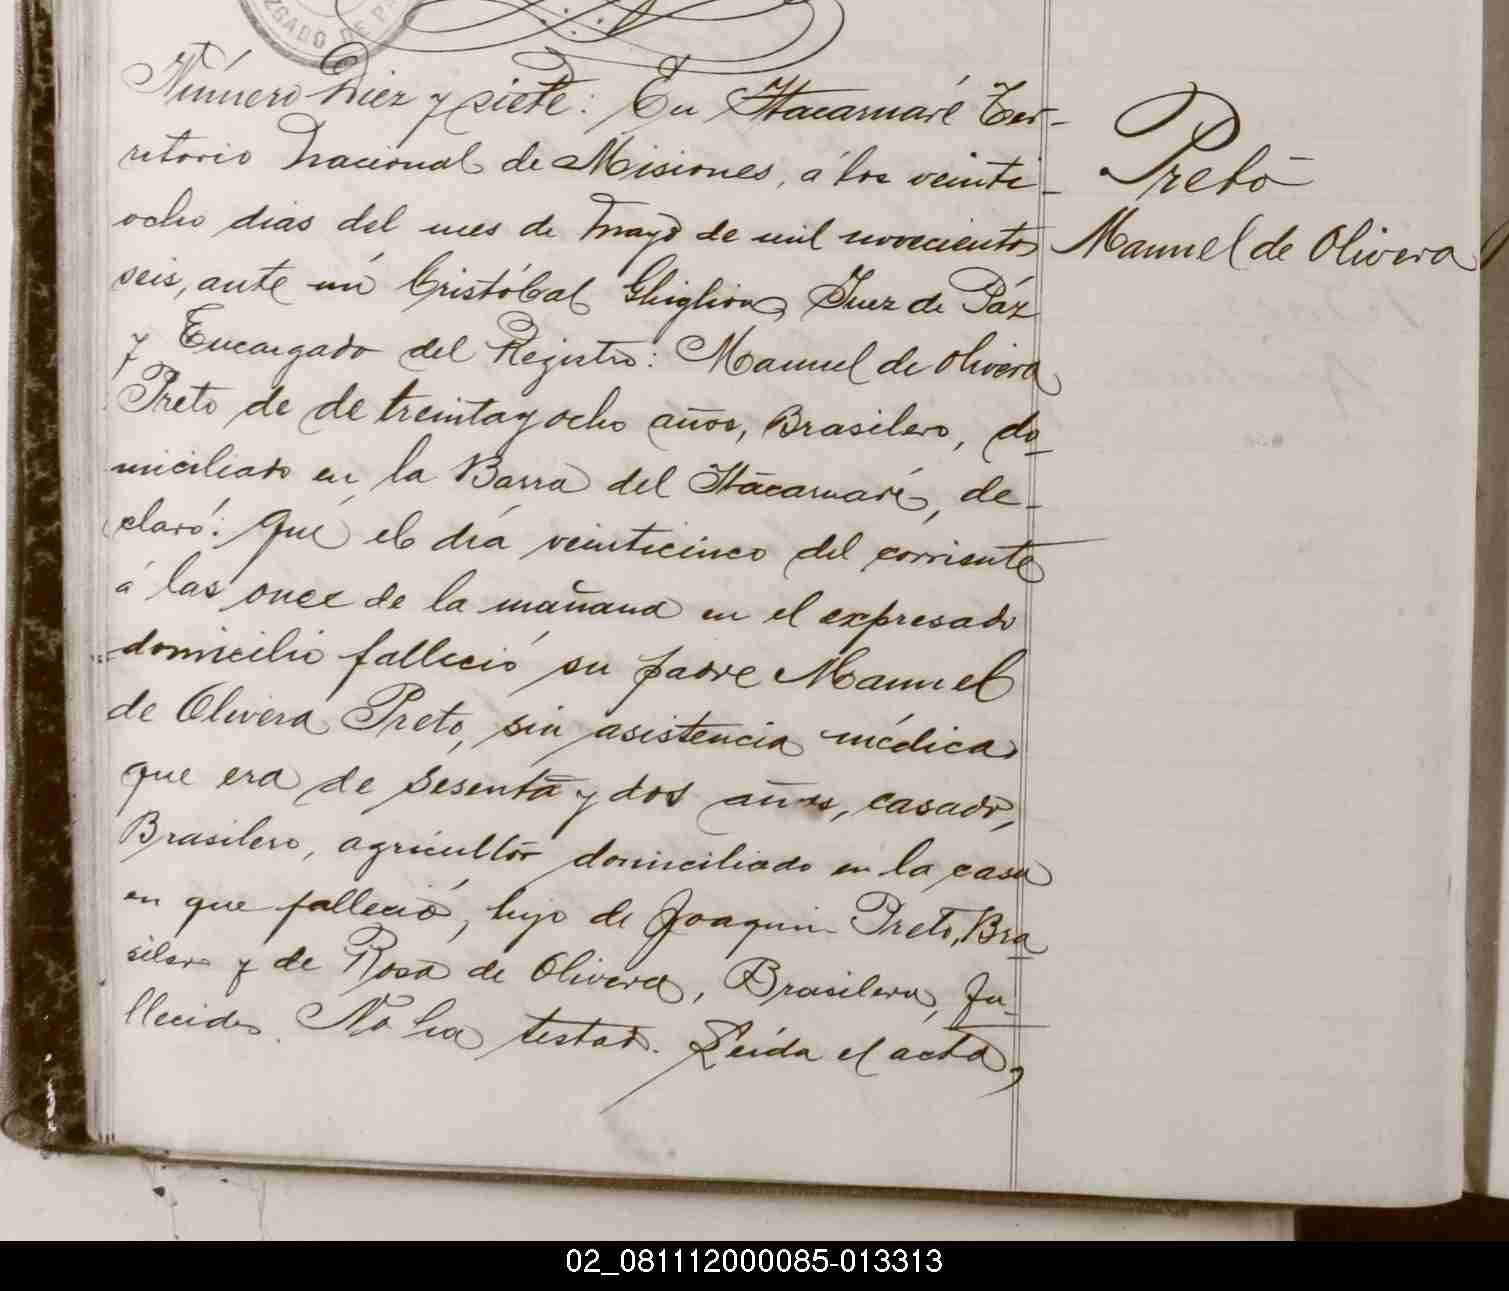 JUZGADO DE PA
Número Diez y siete: En Itacarnaré Ter-
ritorio Nacional de Misiones, á los veinti-
ocho dias del mes de Mayo de mil novecientos
seis, ante mí Cristóbal Ghiglion, Juez de Páz
y Encargado del Registro: Manuel de Olivera
Preto de de treinta y ocho años, Brasilero, do-
miciliado en la Barra del Itacarnaré, de-
claró: Qué el día veinticinco del corriente
á las once de la mañana en el expresado
domicilio falleció su padre Manuel
de Olivera Preto, sin asistencia médica
que era de sesenta y dos años, casado,
Brasilero, agricultor domiciliado en la casa
en que falleció, hijo de Joaquin Preto, Bra-
silero y de Rosa de Olivera, Brasilera, fa-
llecidos. No ha testado. Leida el acta,
Preto
Manuel de Olivera
02_081112000085-013313